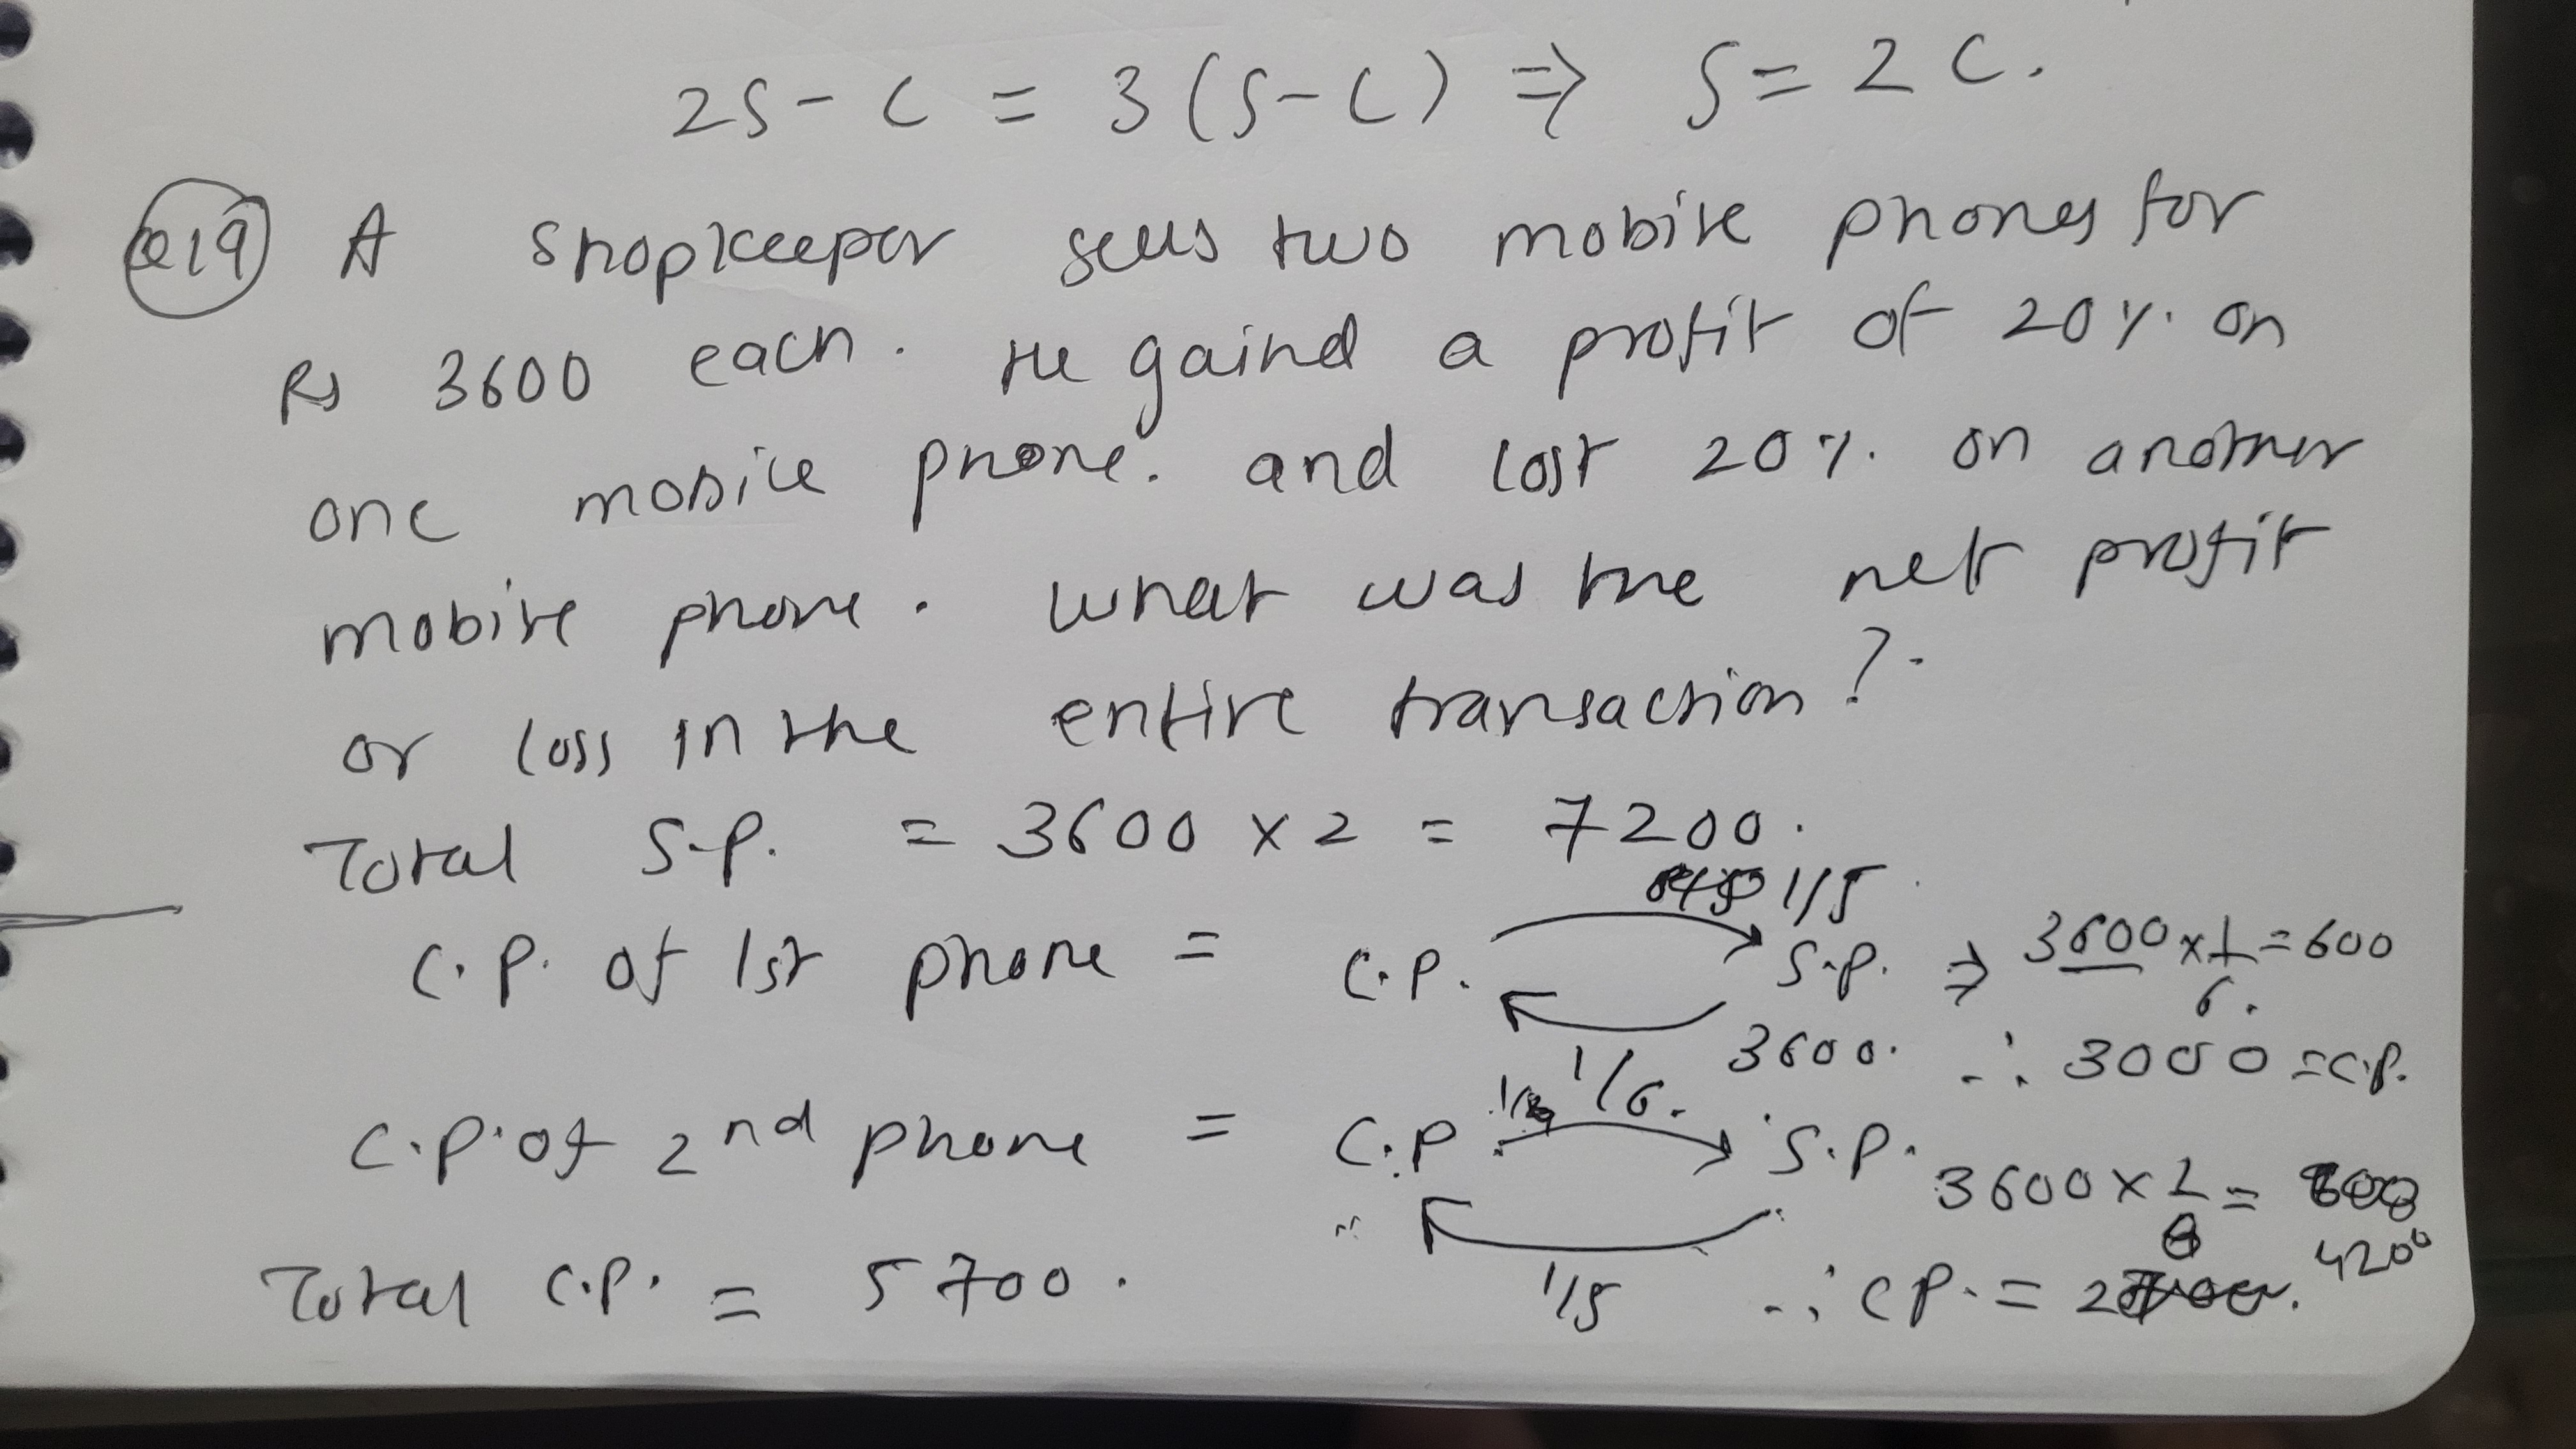 2S - C = 3(S-C) ⇒ S = 2C.
Q19 A shopkeeper sells two mobile phones for
Rs 3600 each. He gaind a profit of 20% on
one mobile phone. and lost 20% on another
mobile phone. What was the net profit
or loss in the entire transaction?
Total S.P. = 3600 x 2 = 7200.
1/5
C.P. of 1st phone = C.P. S.P. ⇒ 3600 x 1/6 = 600
3600. ∴ 3000 = C.P.
1/6.
C.P. of 2nd phone = C.P. S.P. 3600 x 1/ =
4200
Total C.P. = 5700. 1/5 ∴ CP. =